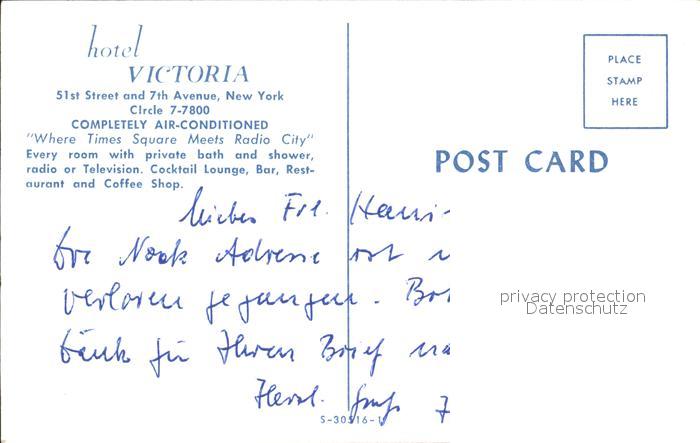 hotel
VICTORIA
51st Street and 7th Avenue, New York
CIrcle 7-7800
COMPLETELY AIR-CONDITIONED
"Where Times Square Meets Radio City"
Every room with private bath and shower,
radio or Television. Cocktail Lounge, Bar, Rest-
aurant and Coffee Shop.
PLACE
STAMP
HERE
POST CARD
Liebes Frl.
Adresse ist
verloren gegangen.
für Ihren Brief
Herzl. Gruß
privacy protection
Datenschutz
S-30516-1